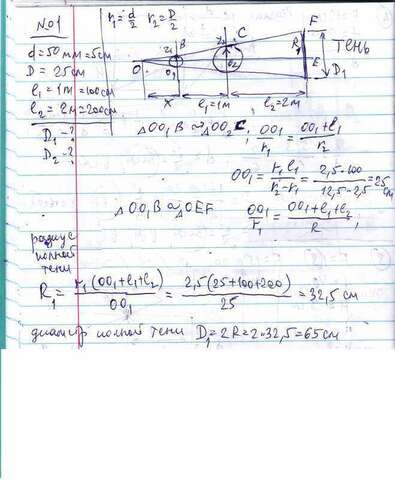 №1
d=50мм=5см
D = 25см
l₁=1м=100см
l₂=2м=200см
D₁-?
D₂-?
r₁=d/2 r₂=D/2
B C F
r₁ r₂ R₁ тень
O O₁ O₂ E D₁
x l₁=1м l₂=2м
△OO₁B ~ △OO₂C; OO₁/r₁ = (OO₁+l₁)/r₂
OO₁ = r₁l₁/(r₂-r₁) = 2,5·100/(12,5-2,5) = 25 см
△OO₁B ~ △OEF OO₁/r₁ = (OO₁+l₁+l₂)/R,
радиус
полной
тени
R₁ = r₁(OO₁+l₁+l₂)/OO₁ = 2,5(25+100+200)/25 = 32,5 см
диаметр полной тени D₁=2R=2·32,5=65см